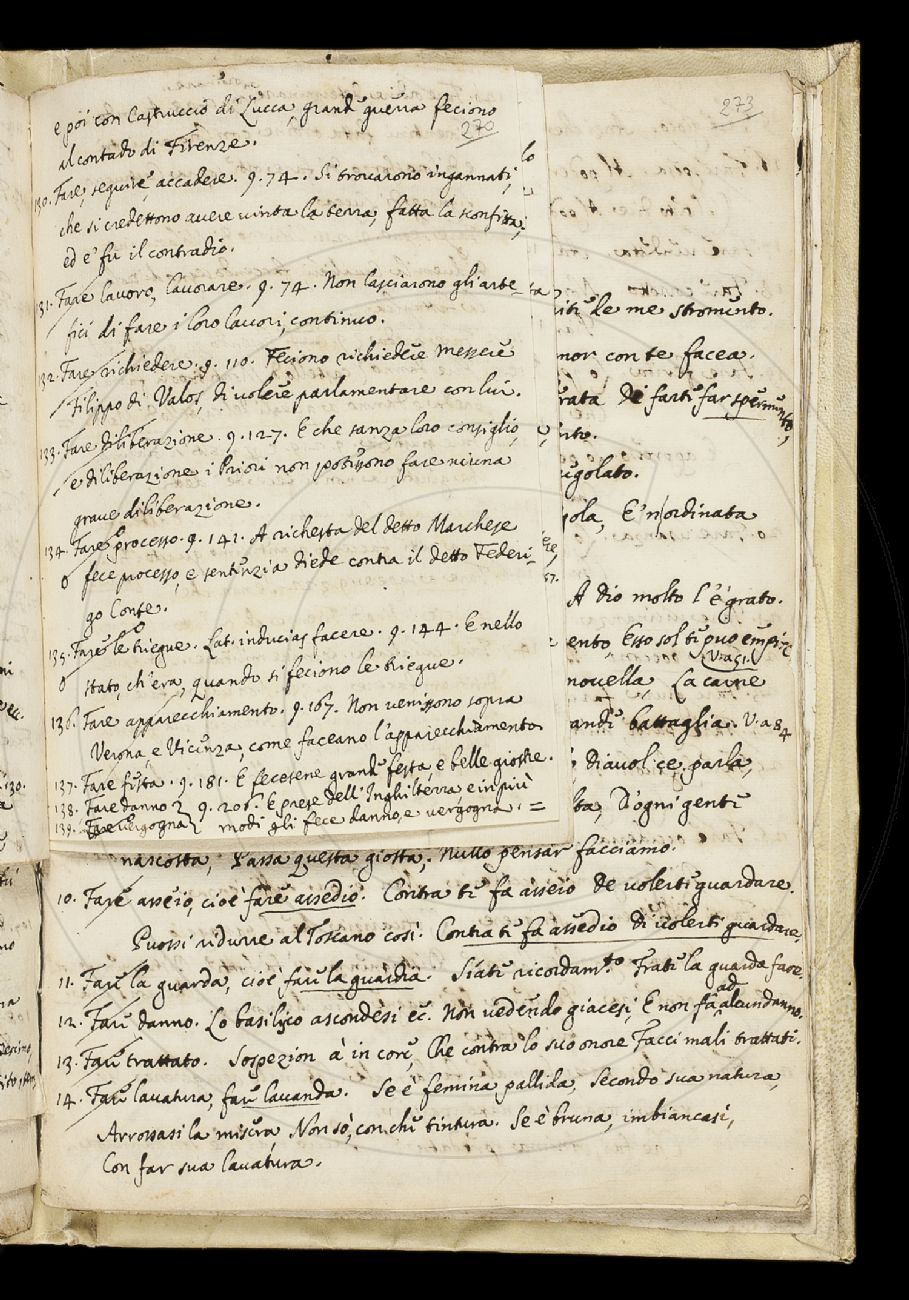 e poi con Castruccio di Lucca, grand' guerra feciono
270
al contado di Firenze.
130. Fare, seguire, accadere. 9. 74. Si trovarono ingannati,
che si credettono avere vinta la terra, fatta la sconfitta;
ed e' fù il contradio.
131. Fare lavoro, lavorare. 9. 74. Non lasciarono gli arte-
fici di fare i loro lavori continuo.
132. Fare richiedere. 9. 110. Feciono richiedere Messere
Filippo di Valos, di volere parlamentare con lui.
133. Fare diliberazione. 9. 127. E che sanza loro consiglio,
e diliberazione i Priori non potessono fare niuna
grave diliberazione.
134. Fare processo. 9. 141. A richesta del detto Marchese
fece processo, e sentenzia diede contra il detto Federi-
go Conte.
135. Fare le triegue. Lat. inducias facere. 9. 144. E nello
stato, ch'era, quando si feciono le triegue.
136. Fare apparecchiamento. 9. 167. Non venissono sopra
Verona, e Vicenza, come faceano l'apparecchiamento.
137. Fare festa. 9. 181. E fecesene grande festa, e belle giostre.
138. Fare danno } 9. 206. E prese dell'Inghilterra e in più
139. Fare vergogna } modi gli fece danno, e vergogna. =
273
de me stromento.
con te facea.
De farti far spermento,
ugolato.
E' n'ordinata
A dio molto l'è grato.
Esso sol ti può empire
V. a 51.
novella, La carne
battaglia. V. a 84
Diavol ce parla,
D'ogni gente
nascosta, Passa questa giostra, Nullo pensar facciamo.
10. Fare asseio, cioè fare assedio. Contra te fa asseio De volerti guardare.
Puossi ridurre al Toscano così. Contra te fa assedio di volerti guardare.
11. Fare la guarda, cioè fare la guardia. Siate ricordamto Frate la guarda fare.
ad
12. Fare danno. Lo basilisco ascondesi ec. Non vedendo giacesi, E non fa alcun danno.
13. Fare trattato. Sospezion à in core, Che contra lo suo onore Facci mali trattati.
14. Fare lavatura, fare lavanda. Se è femina pallida, Secondo sua natura,
Arrossasi la misera, Non sò, con che tintura. Se è bruna, imbiancasi,
Con far sua lavatura.